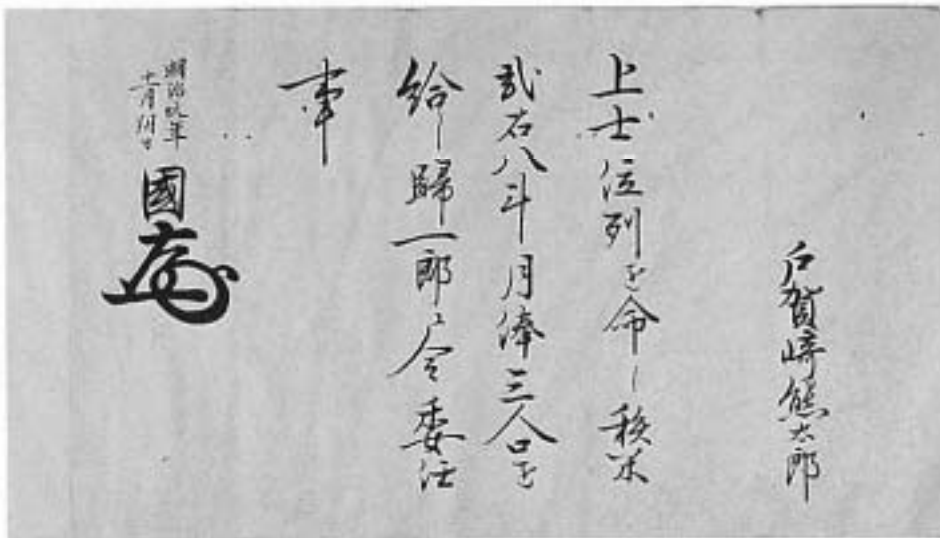 戸賀崎熊太郎
上士位列を命し秩米
貮石八斗月俸三人口を
給し歸一郎に令委任
事
明治弐年
十一月
國